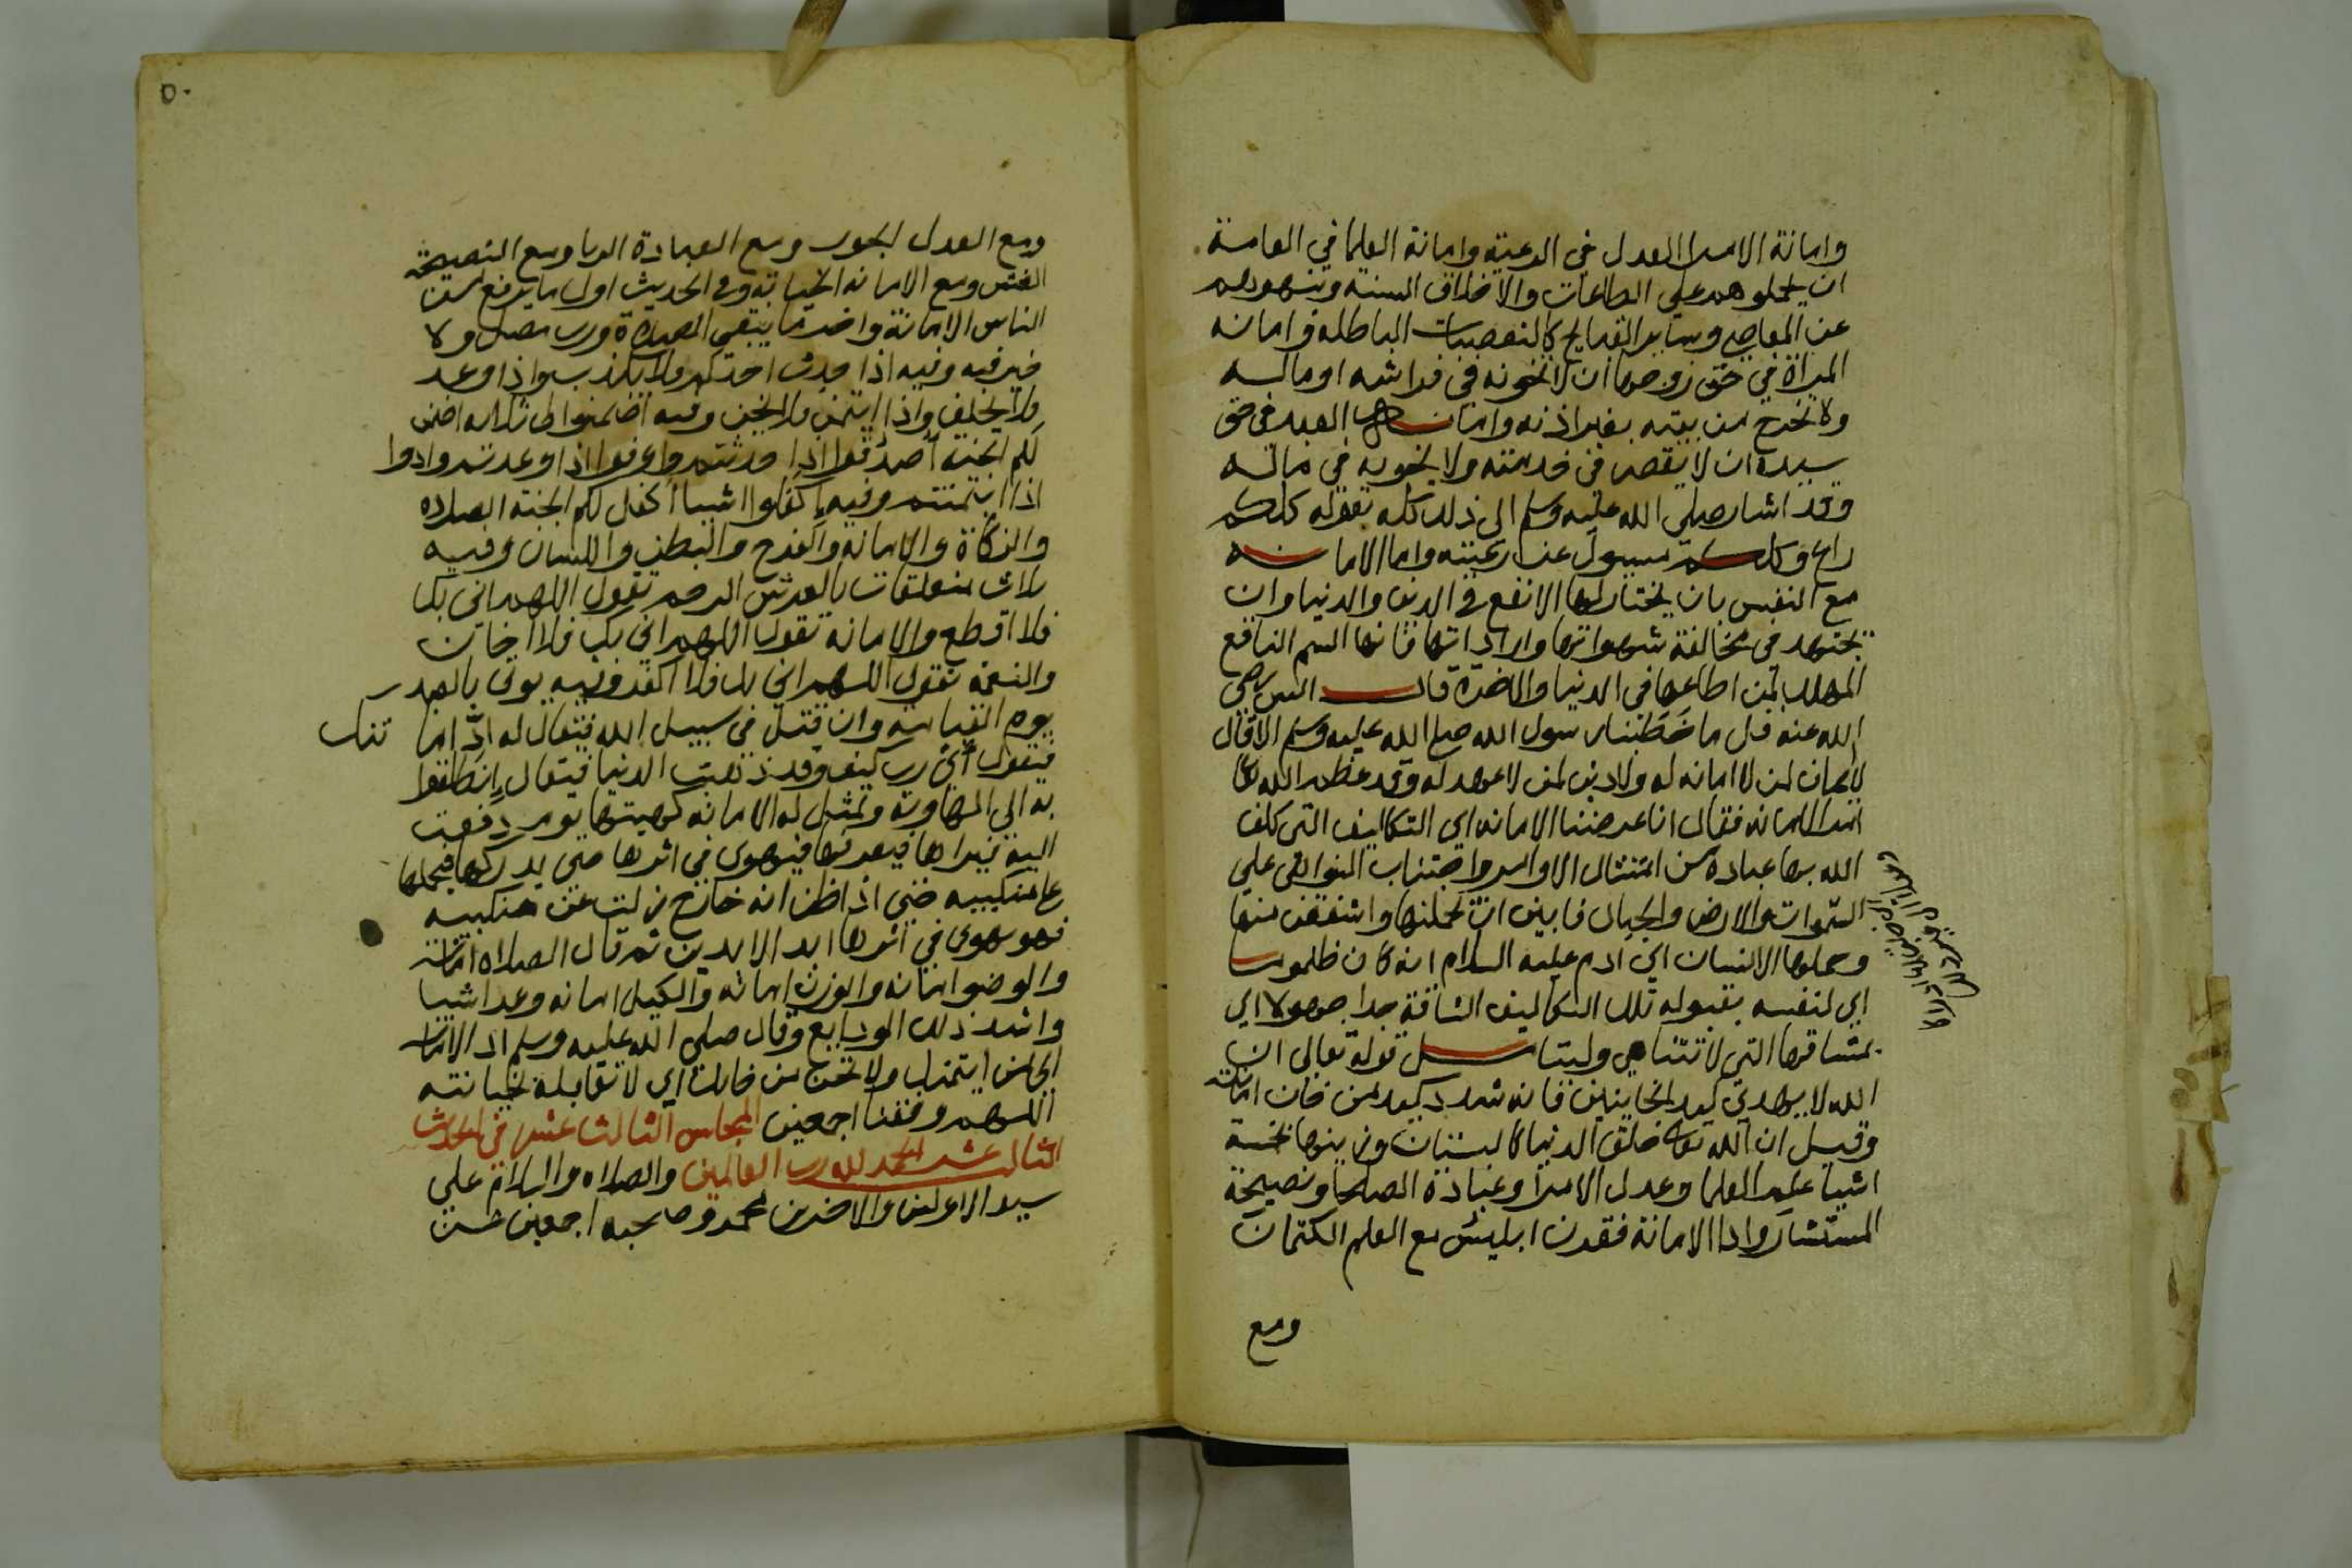 وامانة الامرا العدل في الرعية وامانة العلما في العامة
ان يحملوهم علي الطاعات والاخلاق السنيه وينهوهم
عن المعاصي وساير القبايح كالتعصبات الباطله وامانه
المراة في حق زوجها ان لا تخونه في فراشه او ماله
ولا تخرج من بيته بغير اذنه وامانة العبد في حق
سيده ان لا يقصر في خدمته ولا يخونه في ماله
وقد اشار صلي الله عليه وسلم الي ذلك كله بقوله كلكم
راع وكلكم مسيول عن رعيته واما الامانه
مع النفس بان يختار لها الانفع في الدين والدنيا وان
يجتهد في مخالفة شهواتها واراداتها فانها السم الناقع
المهلك لمن اطاعها في الدنيا والاخرة قال انس رضي
الله عنه قل ما خطبنا رسول الله صلي الله عليه وسلم الا قال
لا ايمان لمن لا امانه له ولا دين لمن لا عهد له وقد عظم الله تعالي
امر الامانه فقال انا عرضنا الامانه اي التكاليف التي كلف
الله بها عباده من امتثال الاوامر واجتناب النواهي علي
السموات والارض والجبال فابين ان يحملنها واشفقن منها
وحملها الانسان اي ادم عليه السلام انه كان ظلوما
اي لنفسه بقبوله تلك التكاليف الشاقة جدا جهولا اي
بمشاقها التي لا تتناهي وليتامل قوله تعالي ان
الله لا يهدي كيد الخاينين فانه شدد كيد من خان امانته
وقيل ان الله تعالي خلق الدنيا كالبستان وزينها بخمسة
اشيا علم العلما وعدل الامرا وعبادة الصلحا ونصيحة
المستشار وادا الامانة فقرن ابليس مع العلم الكتمان
ومع
٥٠
ومع العدل الجور ومع العبادة الريا ومع النصيحة
الغش ومع الامانه الخيانه وفي الحديث اول ما يرفع من
الناس الامانة واخر ما يبقي الصلاة ورب مصل ولا
خير فيه وفيه اذا حدث احدكم فلا يكذب واذا وعد
فلا يخلف واذا ايتمن فلا يخن وفيه اضمنوا لي ثلاثه اضمن
لكم الجنه اصدقوا اذا حدثتم واوفوا اذا وعدتم وادوا
اذا ايتمنتم وفيه اكفلوا اشيا اكفل لكم الجنه الصلاه
والزكاة والامانه والفرج والبطن واللسان وفيه
ثلاث متعلقات بالعرش الرحم تقول اللهم اني بك
فلا اقطع والامانه تقول اللهم اني بك فلا اخان
والنعمة تقول اللهم اني بك فلا اكفر وفيه يوتي بالعبد
يوم القيامة وان قتل في سبيل الله فيقال له اد امانتك
فيقول اي رب كيف وقد ذهبت الدنيا فيقال انطلقوا
به الي الهاوية وتمثل له الامانه كهيتها يوم دفعت
اليه فيراها فيعرفها فيهوي في اثرها حتي يدركها فيحملها
علي منكبيه حتي اذا ظن انه خارج زلت عن منكبيه
فهو يهوي في اثرها ابد الابدين ثم قال الصلاه امانة
والوضو امانه والوزن امانه والكيل امانه وعد اشيا
واشد ذلك الودايع وقال صلي الله عليه وسلم اد الامانة
الي من ايتمنك ولا تخن من خانك اي لا تقابله بخيانته
اللهم وفقنا اجمعين المجلس الثالث عشر في الحديث
الثالث عشر الحمد لله رب العالمين والصلاه والسلام علي
سيد الاولين والاخرين محمد وصحبه اجمعين عن